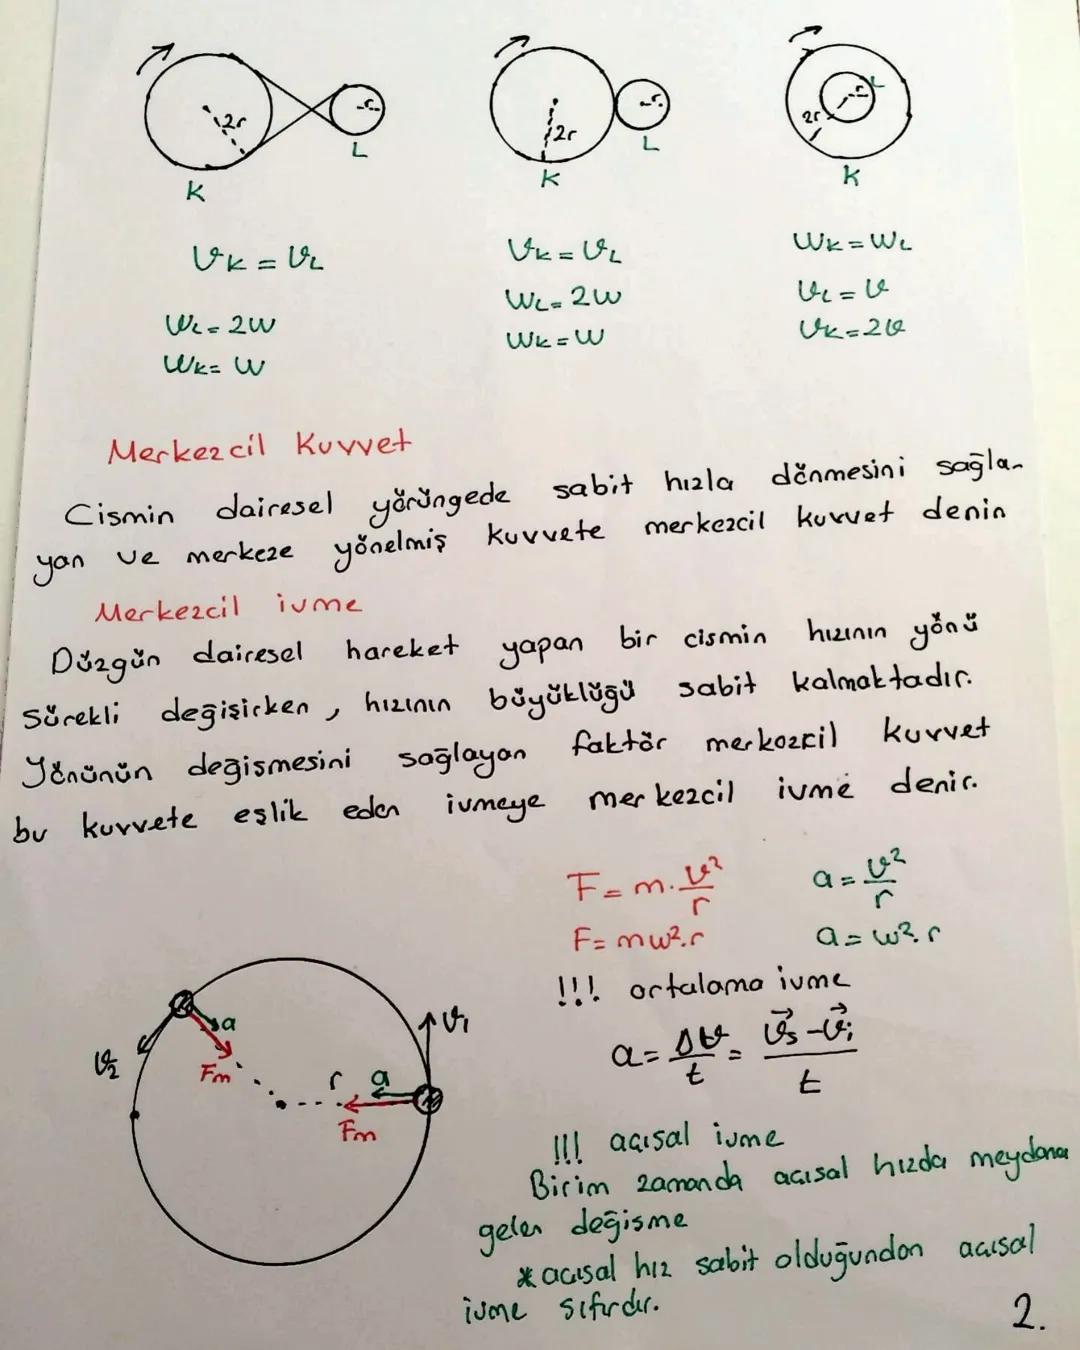 2r r 2r r 2r r L
K L K L K
υK = υL υK = υL WK = WL
WL = 2W WL = 2W υL = υ
WK = W WK = W υK = 2υ
Merkezcil Kuvvet
Cismin dairesel yörüngede sabit hızla dönmesini sağla-
yan ve merkeze yönelmiş kuvvete merkezcil kuvvet denin
Merkezcil ivme
Düzgün dairesel hareket yapan bir cismin hızının yönü
sürekli değişirken, hızının büyüklüğü sabit kalmaktadır.
Yönünün değişmesini sağlayan faktör merkezcil kuvvet
bu kuvvete eşlik eden ivmeye merkezcil ivme denir.
F = m.υ²/r a = υ²/r
F = mw².r a = w².r
!!! ortalama ivme
a = Δυ/t = (υ⃗s - υ⃗i)/t
υ2 a Fm r a Fm υ1
!!! açısal ivme
Birim zamanda açısal hızda meydana
gelen değişme
* açısal hız sabit olduğundan açısal
ivme sıfırdır.
2.